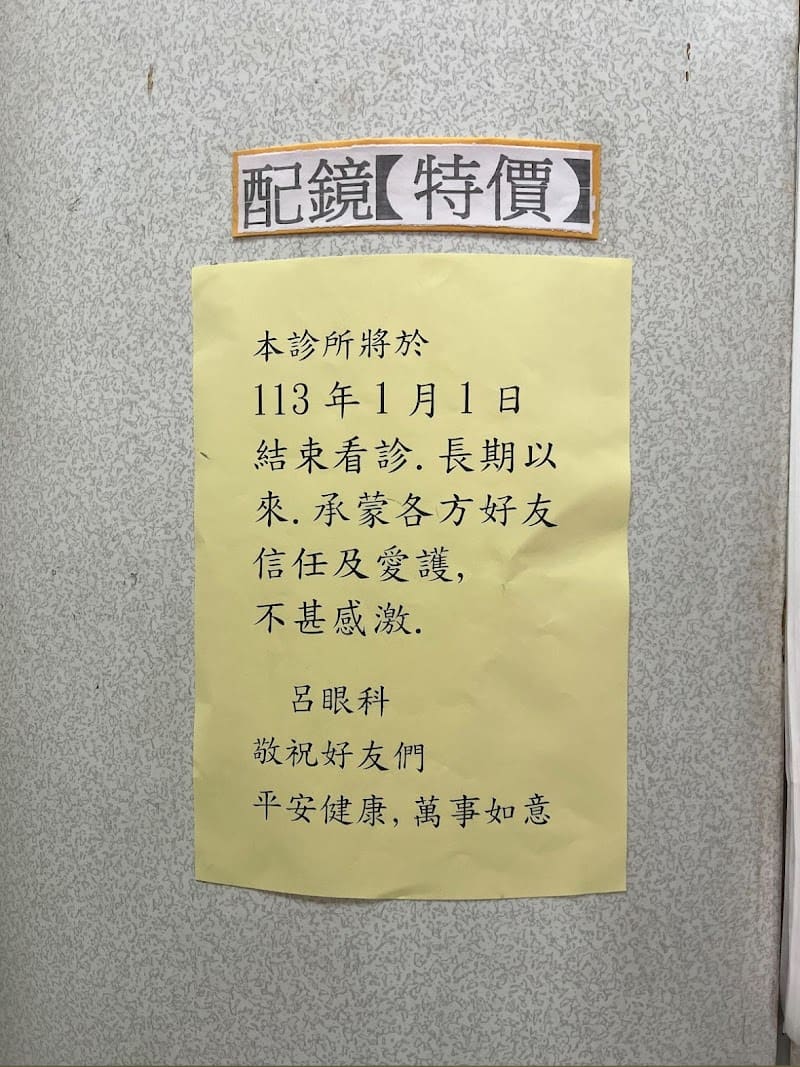 配鏡【特價】
本診所將於
113 年 1 月 1 日
結束看診. 長期以
來. 承蒙各方好友
信任及愛護,
不甚感激.
呂眼科
敬祝好友們
平安健康, 萬事如意